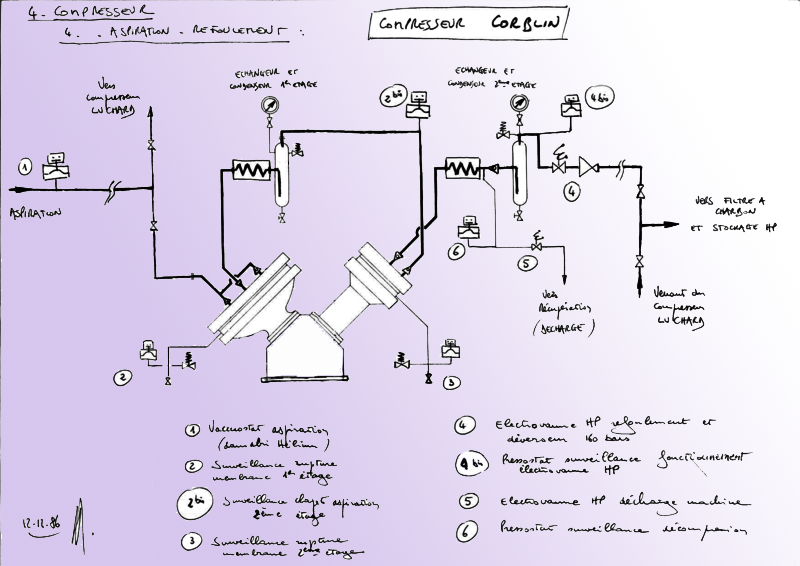 4. COMPRESSEUR
4. . ASPIRATION - REFOULEMENT :
COMPRESSEUR CORBLIN
Vers
compresseur
LUCHARD
ECHANGEUR ET
CONDENSEUR 1er ETAGE
2 bis
ECHANGEUR ET
CONDENSEUR 2ème ETAGE
4 bis
1
ASPIRATION
4
VERS FILTRE A
CHARBON
ET STOCKAGE HP
6
5
Vers
Récupération
(DECHARGE)
Venant du
compresseur
LUCHARD
2
3
1 Vacuostat aspiration
(dans abri Hélium)
2 Surveillance rupture
membrane 1er étage
2 bis Surveillance clapet aspiration
2ème étage
3 Surveillance rupture
membrane 2ème étage
4 Electrovanne HP refoulement et
déverseur 160 bars
4 bis Pressostat surveillance fonctionnement
électrovanne HP
5 Electrovanne HP décharge machine
6 Pressostat surveillance décompression
12-12-86